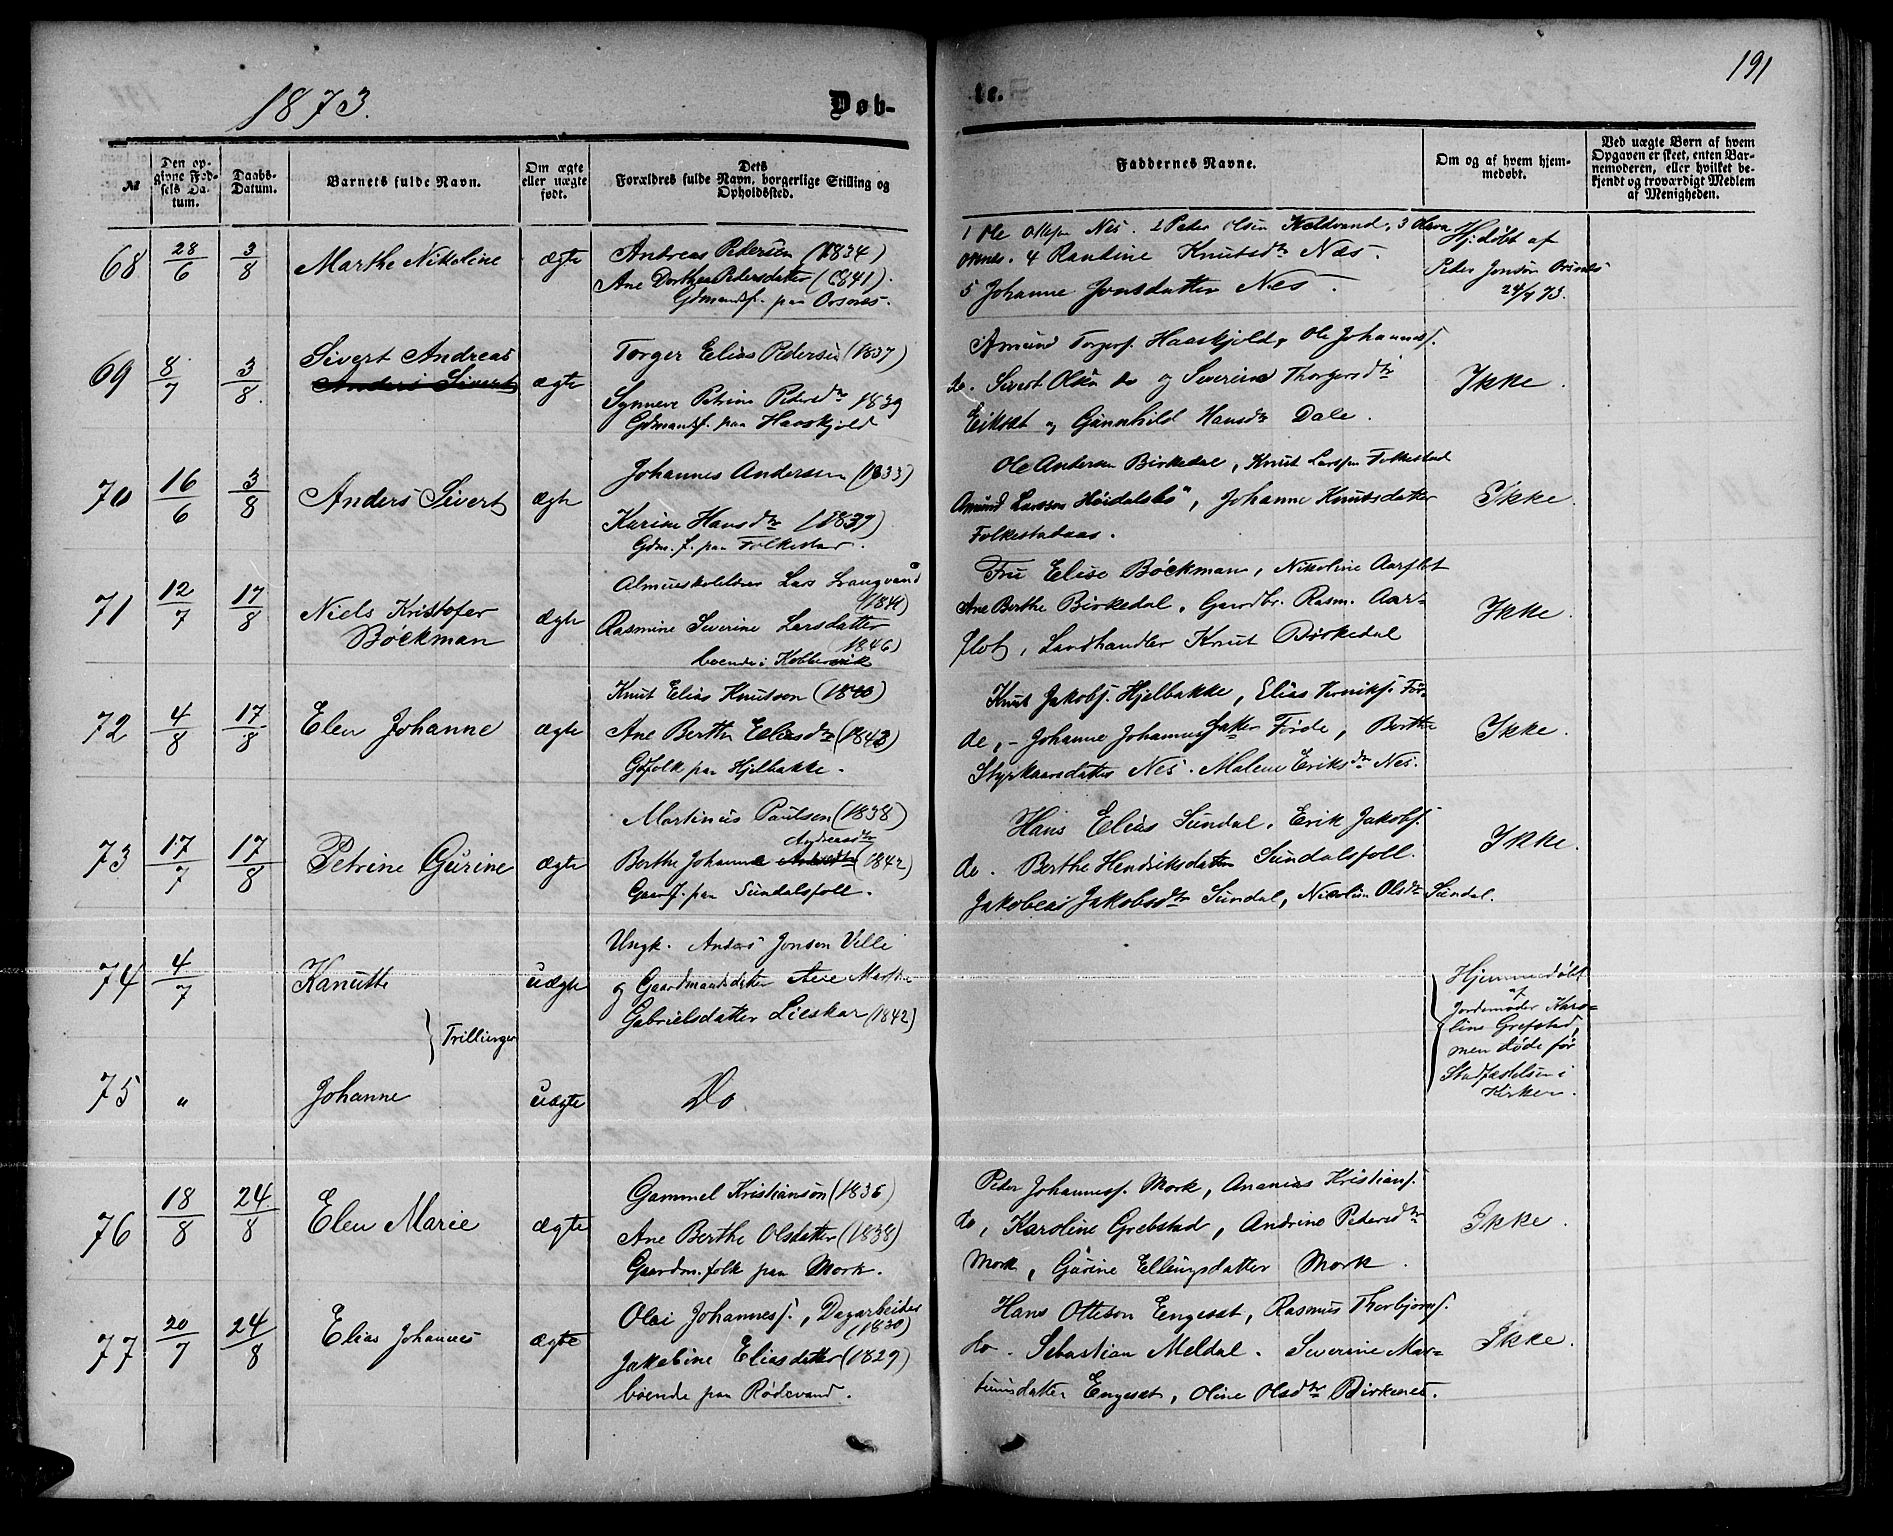 191
1873.
Døb-
te.
№
Den op-
givne Fød-
sels Da-
tum.
Daabs-
Datum.
Barnets fulde Navn.
Om ægte
eller uægte
født.
Dets
Forældres fulde Navn, borgerlige Stilling og
Opholdssted.
Faddernes Navne.
Om og af hvem hjem-
medøbt.
Ved uægte Børn af hvem
Opgaven er skeet, enten Bar-
nemoderen, eller hvilket be-
kjendt og troværdigt Medlem
af Menigheden.
68
28/6
3/8
Marthe Nikoline
ægte
Andreas Pedersen (1834)
Ane Dorthea Pedersdatter (1841).
Gdmandsf. paa
1 Ole Nes. 2 Peder Olsen 3
4 Randine Knutsdtr Næs.
5 Johanne Jonsdatter Nes
Hj.døbt af
Peder Jonsen
69
8/7
3/8
Sivert Andreas
Anders Sivert
ægte
Torger Elias Pedersen (1837)
Synneve Petrine Pedersdtr 1839
Gdmandsf. paa Haaskjold
Amund Torgers. Haaskjold, Ole Johanness.
do. Sivert Olsen do og Severine Thorgersdtr
Eikset og Gunnhild Hansdtr Dale.
Ikke.
70
16/6
3/8
Anders Sivert
ægte
Johannes Andersen (1833)
Karine Hansdtr (1839)
Gdm.f. paa Folkestad.
Ole Andersen Birkedal, Knut Larssen Folkestad
Amund Larssen , Johanne Knutsdatter
Folkestadaas.
Ikke.
71
12/7
17/8
Niels Kristofer
Bøckman
ægte
Almueskolelærer Lars
(1841)
Rasmine Severine Larsdatter
1846)
boende i Kobbervik
Fru Elise Bøckman, Nikoline Aarflot
Ane Berthe Birkedal, Gardbr. Rasm. Aar-
flot, Landhandler Knut Birkedal
Ikke.
72
4/8
17/8
Elen Johanne
ægte
Knut Elias Knutson (1840)
Ane Berthe Eliasdtr (1843)
Gdfolk paa Hjelbakke.
Knut Jakobs. Hjelbakke, Elias Før-
de, - Johanne Førde, Berthe
Styrkaarsdatter Nes. Malene Eriksdtr Nes.
Ikke.
73
17/7
17/8
Petrine Gurine
ægte
Martinus Paulsen (1838)
Andreasdtr
Berthe Johanne (1842)
Gaarf. paa Sundalsfoll.
Hans Elias Sundal. Erik Jakobs.
do. Berthe Hendriksdatter Sundalsfoll.
Jakobsdtr Sundal, Olsdtr Sundal.
Ikke.
74
4/7
Kanutte
uægte
Ungk. Anders Jonsen Velle
og Gaardmandsdatter Marthe
Gabrielsdatter Lieskar (1842)
Trillinger
Hjemmedøbt
af
Jordemoder Karo-
line Grefstad,
men døde før
Stadfæstelsen i
Kirken.
75
"
Johanne
uægte
Do
76
18/8
24/8
Elen Marie
ægte
Gammel Kristiansøn (1836)
Ane Berthe Olsdatter (1838)
Gaardm.folk paa Mork.
Peder Johanness. Mork, Ananias Kristians.
do, Karoline Grebstad, Andrine Pedersdtr
Mork, Gurine Ellingsdatter Mork.
Ikke.
77
20/7
24/8
Elias Johannes
ægte
Olai Johanness., Dagarbeider
(1830)
Jakobine Eliasdatter (1829)
boende paa Rødevand.
Hans Otteson Engeset, Rasmus Thorbjorns.
do. Sebastian Meldal. Severine Mar-
tinusdatter Engeset, Oline Olsdtr Birkenes.
Ikke.